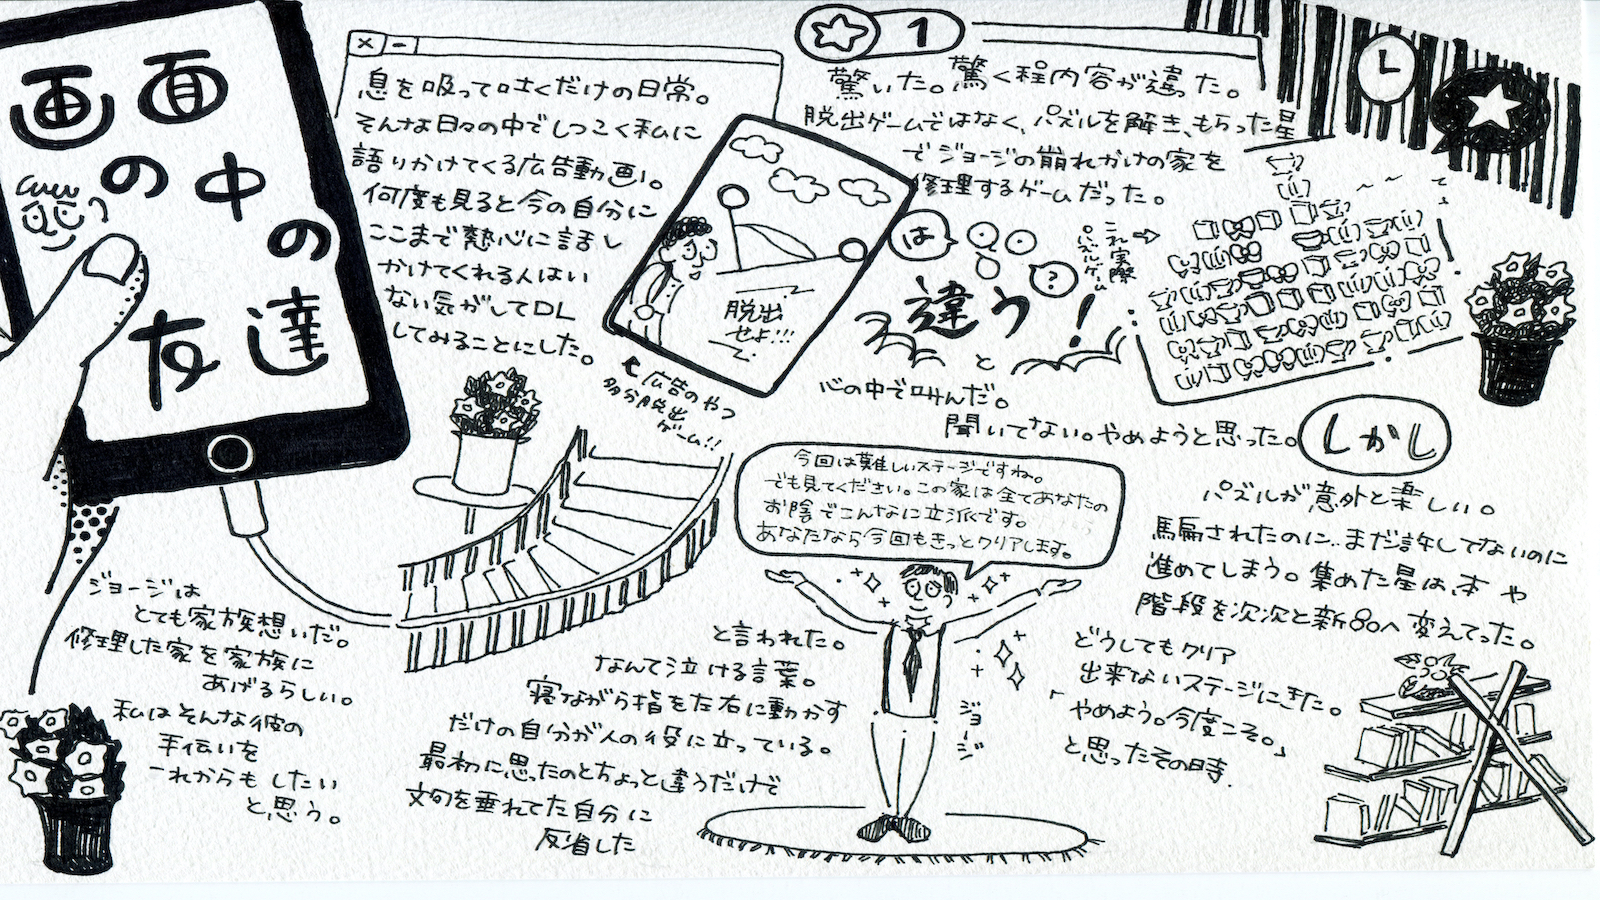 画面
の中の
友達
息を吸って吐くだけの日常。
そんな日々の中でしつこく私に
語りかけてくる広告動画。
何度も見ると今の自分に
ここまで熱心に話し
かけてくれる人はい
ない気がしてDL
してみることにした。
脱出
せよ!!!
広告のやつ
多分脱出
ゲーム!!
1
驚いた。驚く程内容が違った。
脱出ゲームではなく、パズルを解き、もらった星
でジョージの崩れかけの家を
修理するゲームだった。
は
?
違う!
と
心の中で叫んだ。
これ実際
のパズルゲーム
聞いてない。やめようと思った。
しかし
パズルが意外と楽しい。
騙されたのに..まだ許してないのに
進めてしまう。集めた星は、本や
階段を次次と新品へ変えてった。
どうしてもクリア
出来ないステージにきた。
「やめよう。今度こそ。」
と思ったその時、
今回は難しいステージですね。
でも見てください。この家は全てあなたの
お陰でこんなに立派です。
あなたなら今回もきっとクリアします。
ジョージ
と言われた。
なんて泣ける言葉。
寝ながら指を左右に動かす
だけの自分が人の役に立っている。
最初に思ったのとちょっと違うだけで
文句を垂れてた自分に
反省した
ジョージは
とても家族想いだ。
修理した家を家族に
あげるらしい。
私はそんな彼の
手伝いを
これからもしたい
と思う。